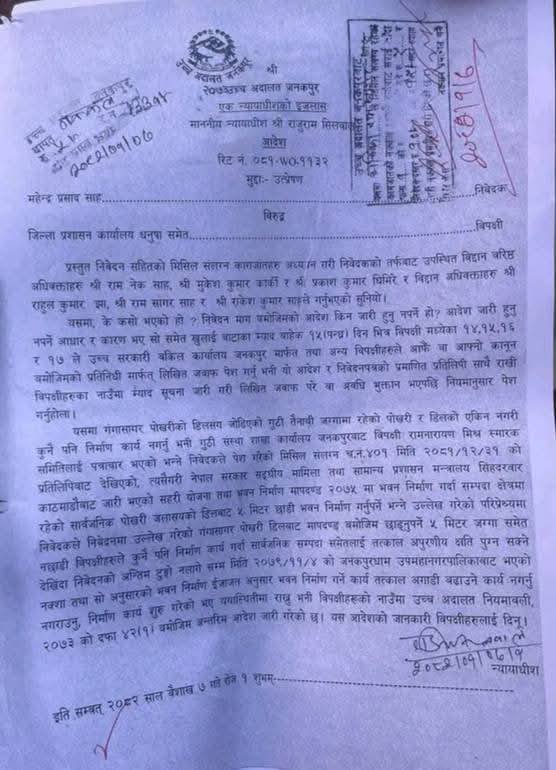 उच्च अदालत जनकपुर
श्री
उच्च अदालत जनकपुर
एक न्यायाधीशको इजलास
माननीय न्यायाधीश श्री राजुराम सिलवाल
आदेश
रिट नं. ०८१-WO-११३२
मुद्दाः- उत्प्रेषण
२०८२/०१/०७
महेन्द्र प्रसाद साह निवेदक
विरुद्ध
जिल्ला प्रशासन कार्यालय धनुषा समेत विपक्षी
प्रस्तुत निवेदन सहितको मिसिल संलग्न कागजातहरु अध्ययन गरी निवेदकको तर्फबाट उपस्थित विद्वान वरिष्ठ
अधिवक्ताहरु श्री राम नेक साह, श्री मुकेश कुमार कार्की र श्री प्रकाश कुमार घिमिरे र विद्वान अधिवक्ताहरु श्री
राहुल कुमार झा, श्री राम सागर साह र श्री राकेश कुमार साहले गर्नुभएको सुनियो।
यसमा, के कसो भएको हो ? निवेदन माग बमोजिमको आदेश किन जारी हुनु नपर्ने हो? आदेश जारी हुनु
नपर्ने आधार र कारण भए सो समेत खुलाई बाटाका म्याद बाहेक १५(पन्ध्र) दिन भित्र विपक्षी मध्येका १४,१५,१६
र १७ ले उच्च सरकारी वकिल कार्यालय जनकपुर मार्फत तथा अन्य विपक्षीहरुले आफै वा आफ्नो कानून
बमोजिमको प्रतिनिधी मार्फत् लिखित जवाफ पेश गर्नु भनी यो आदेश र निवेदनपत्रको प्रमाणित प्रतिलिपी साथै राखी
विपक्षीहरुका नाउँमा म्याद सूचना जारी गरी लिखित जवाफ परे वा अवधि भुक्तान भएपछि नियमानुसार पेश
गर्नुहोला।
यसमा गंगासागर पोखरीको डिलसँग जोडिएको गुठी तैनाथी जग्गामा रहेको पोखरी र डिलको एकिन नगरी
कुनै पनि निर्माण कार्य नगर्नु भनी गुठी संस्थान शाखा कार्यालय जनकपुरबाट विपक्षी रामनारायण मिश्र स्मारक
समितिलाई पत्राचार भएको भन्ने निवेदकले पेश गरेको मिसिल संलग्न च.नं.४०१ मिति २०८१/१२/३१ को
प्रतिलिपिबाट देखिएको, त्यसैगरी नेपाल सरकार सङ्घीय मामिला तथा सामान्य प्रशासन मन्त्रालय सिंहदरवार
काठमाडौंबाट जारी भएको सहरी योजना तथा भवन निर्माण मापदण्ड २०७५ मा भवन निर्माण गर्दा सम्पदा क्षेत्रमा
रहेको सार्वजनिक पोखरी जलासयको डिलबाट ५ मिटर छाडी भवन निर्माण गर्नुपर्ने भन्ने उल्लेख गरेको परिप्रेक्ष्यमा
निवेदकले निवेदनमा उल्लेख गरेको गंगासागर पोखरी डिलबाट मापदण्ड बमोजिम छाड्नुपर्ने ५ मिटर जग्गा समेत
नछाडी विपक्षीहरुले कुनै पनि निर्माण कार्य गर्दा सार्वजनिक सम्पदा समेतलाई तत्काल अपुरणीय क्षति पुग्न सक्ने
देखिंदा निवेदनको अन्तिम टुङ्गो नलागे सम्म मिति २०७९/११/४ को जनकपुरधाम उपमहानगरपालिकाबाट भएको
नक्शा तथा सो अनुसारको भवन निर्माण ईजाजत अनुसार भवन निर्माण गर्ने कार्य तत्काल अगाडी बढाउने कार्य नगर्नु
नगराउनु, निर्माण कार्य शुरु गरेको भए यथास्थितीमा राख्नु भनी विपक्षीहरुको नाउँमा उच्च अदालत नियमावली,
२०७३ को दफा ४२(१) बमोजिम अन्तरिम आदेश जारी गरेको छ। यस आदेशको जानकारी विपक्षीहरुलाई दिनू।
न्यायाधीश
इति सम्बत् २०८२ साल बैशाख ७ गते रोज १ शुभम्